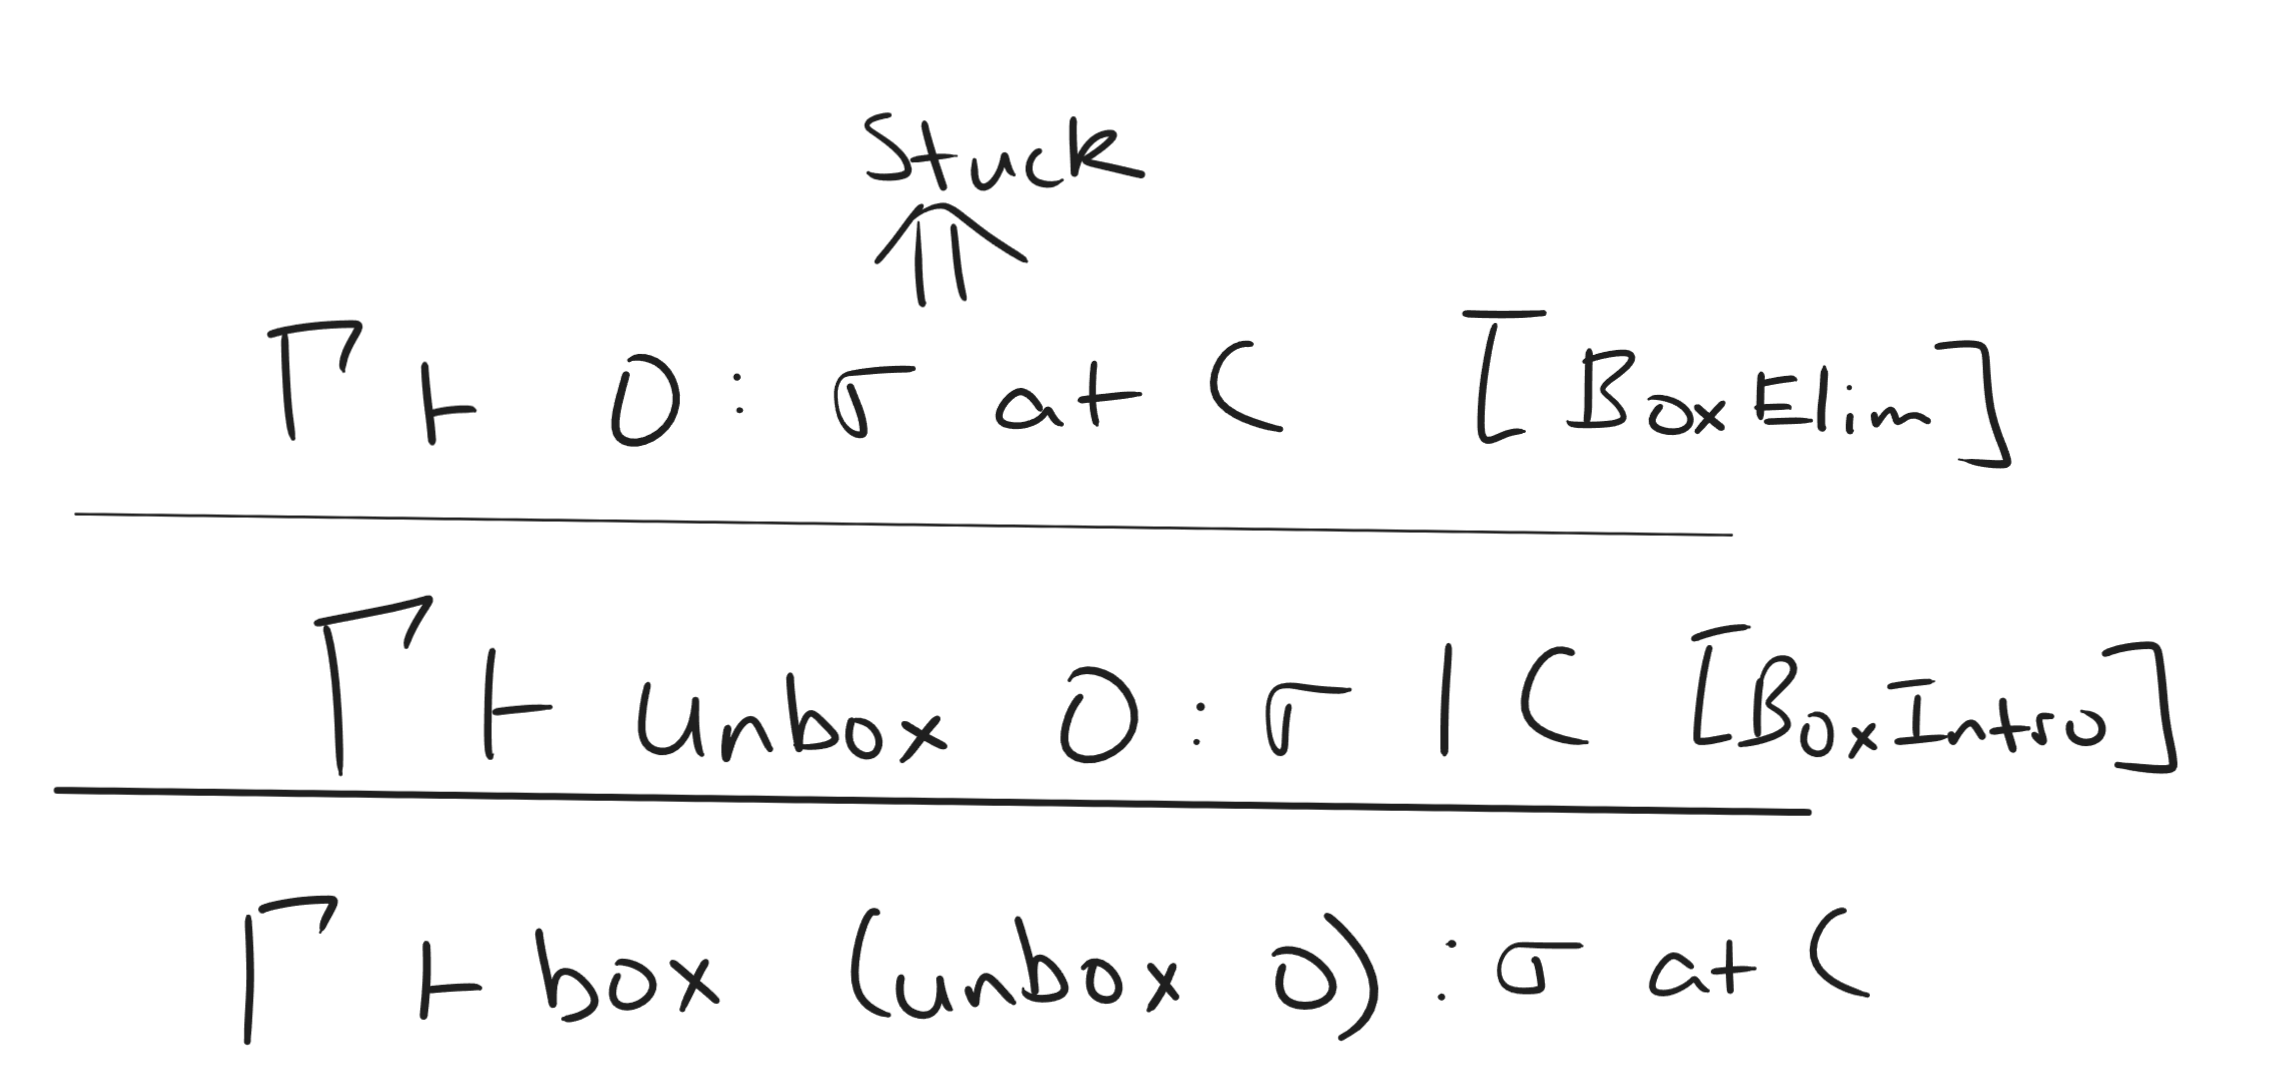 Stuck
⇑
Γ ⊢ 0 : σ at C [BoxElim]
Γ ⊢ unbox 0 : σ | C [BoxIntro]
Γ ⊢ box (unbox 0) : σ at C